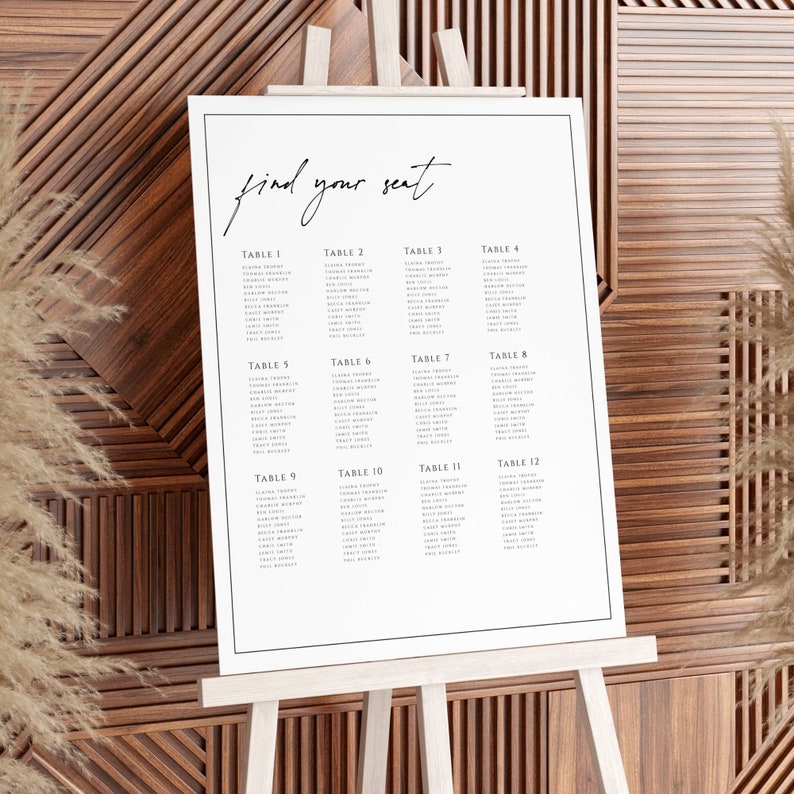 find your seat
TABLE 1
ELAINA TROPHY
THOMAS FRANKLIN
CHARLIE MURPHY
BEN LOUIS
HARLOW HECTOR
BILLY JONES
BECCA FRANKLIN
CASEY MURPHY
CHRIS SMITH
JAMIE SMITH
TRACY JONES
PHIL BUCKLEY
TABLE 2
ELAINA TROPHY
THOMAS FRANKLIN
CHARLIE MURPHY
BEN LOUIS
HARLOW HECTOR
BILLY JONES
BECCA FRANKLIN
CASEY MURPHY
CHRIS SMITH
JAMIE SMITH
TRACY JONES
PHIL BUCKLEY
TABLE 3
ELAINA TROPHY
THOMAS FRANKLIN
CHARLIE MURPHY
BEN LOUIS
HARLOW HECTOR
BILLY JONES
BECCA FRANKLIN
CASEY MURPHY
CHRIS SMITH
JAMIE SMITH
TRACY JONES
PHIL BUCKLEY
TABLE 4
ELAINA TROPHY
THOMAS FRANKLIN
CHARLIE MURPHY
BEN LOUIS
HARLOW HECTOR
BILLY JONES
BECCA FRANKLIN
CASEY MURPHY
CHRIS SMITH
JAMIE SMITH
TRACY JONES
PHIL BUCKLEY
TABLE 5
ELAINA TROPHY
THOMAS FRANKLIN
CHARLIE MURPHY
BEN LOUIS
HARLOW HECTOR
BILLY JONES
BECCA FRANKLIN
CASEY MURPHY
CHRIS SMITH
JAMIE SMITH
TRACY JONES
PHIL BUCKLEY
TABLE 6
ELAINA TROPHY
THOMAS FRANKLIN
CHARLIE MURPHY
BEN LOUIS
HARLOW HECTOR
BILLY JONES
BECCA FRANKLIN
CASEY MURPHY
CHRIS SMITH
JAMIE SMITH
TRACY JONES
PHIL BUCKLEY
TABLE 7
ELAINA TROPHY
THOMAS FRANKLIN
CHARLIE MURPHY
BEN LOUIS
HARLOW HECTOR
BILLY JONES
BECCA FRANKLIN
CASEY MURPHY
CHRIS SMITH
JAMIE SMITH
TRACY JONES
PHIL BUCKLEY
TABLE 8
ELAINA TROPHY
THOMAS FRANKLIN
CHARLIE MURPHY
BEN LOUIS
HARLOW HECTOR
BILLY JONES
BECCA FRANKLIN
CASEY MURPHY
CHRIS SMITH
JAMIE SMITH
TRACY JONES
PHIL BUCKLEY
TABLE 9
ELAINA TROPHY
THOMAS FRANKLIN
CHARLIE MURPHY
BEN LOUIS
HARLOW HECTOR
BILLY JONES
BECCA FRANKLIN
CASEY MURPHY
CHRIS SMITH
JAMIE SMITH
TRACY JONES
PHIL BUCKLEY
TABLE 10
ELAINA TROPHY
THOMAS FRANKLIN
CHARLIE MURPHY
BEN LOUIS
HARLOW HECTOR
BILLY JONES
BECCA FRANKLIN
CASEY MURPHY
CHRIS SMITH
JAMIE SMITH
TRACY JONES
PHIL BUCKLEY
TABLE 11
ELAINA TROPHY
THOMAS FRANKLIN
CHARLIE MURPHY
BEN LOUIS
HARLOW HECTOR
BILLY JONES
BECCA FRANKLIN
CASEY MURPHY
CHRIS SMITH
JAMIE SMITH
TRACY JONES
PHIL BUCKLEY
TABLE 12
ELAINA TROPHY
THOMAS FRANKLIN
CHARLIE MURPHY
BEN LOUIS
HARLOW HECTOR
BILLY JONES
BECCA FRANKLIN
CASEY MURPHY
CHRIS SMITH
JAMIE SMITH
TRACY JONES
PHIL BUCKLEY